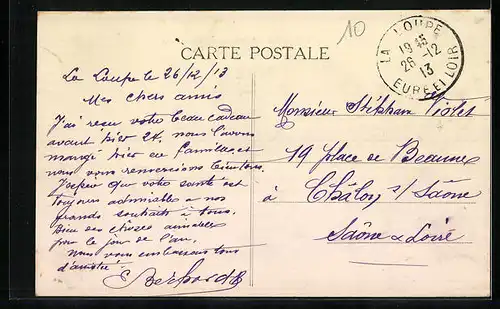 10
LA LOUPE
19 45
26 -12
13
EURE-ET-LOIR
CARTE POSTALE
La Loupe le 26/12/13
Mes chers amis
J'ai reçu votre beau cadeau
avant hier 24. nous l'avons
mangé hier en famille et
nous vous remercions
J'espère que votre santé est
toujours admirable a nos
grands souhaits à tous.
Bien des choses aimables
pour le jour de l'an,
Nous vous embrassons tous
d'amitié
Monsieur Stéphan Violet
19 place de Beaune
à Châlon s/ Saône
Saône & Loire